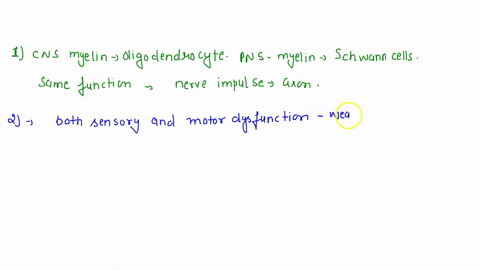 1) CNS myelin → oligodendrocyte. PNS - myelin → Schwann cells.
Same function → nerve impulse → axon.
2) → both sensory and motor dysfunction - wea